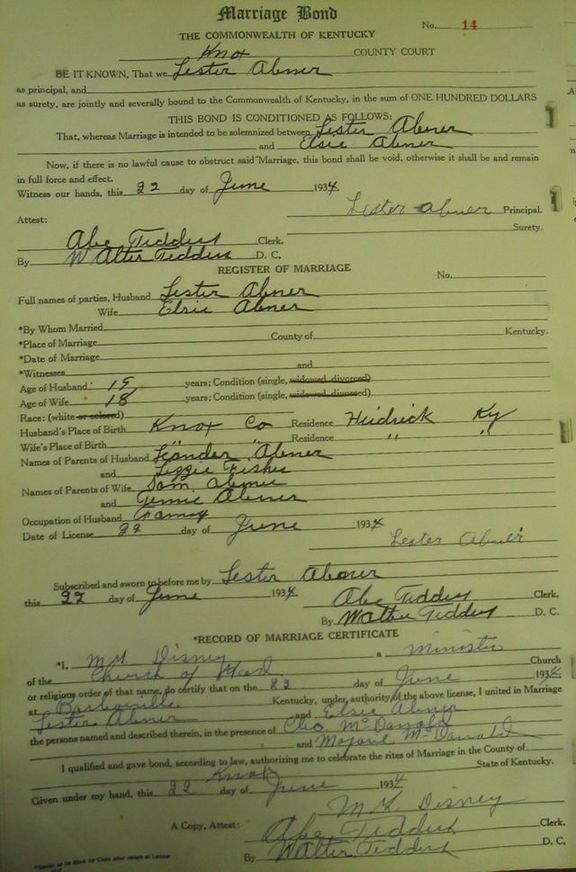 Marriage Bond
No. 14
THE COMMONWEALTH OF KENTUCKY
Knox COUNTY COURT
BE IT KNOWN, That we Lester Abner
as principal, and
as surety, are jointly and severally bound to the Commonwealth of Kentucky, in the sum of ONE HUNDRED DOLLARS
THIS BOND IS CONDITIONED AS FOLLOWS:
That, whereas Marriage is intended to be solemnized between Lester Abner
and Elsie Abner
Now, if there is no lawful cause to obstruct said Marriage, this bond shall be void, otherwise it shall be and remain
in full force and effect.
Witness our hands, this 22 day of June 1934
Lester Abner Principal.
Surety.
Attest:
Abe Tedders Clerk.
By Walter Tedders D. C.
REGISTER OF MARRIAGE
No.
Full names of parties, Husband Lester Abner
Wife Elsie Abner
*By Whom Married
*Place of Marriage County of Kentucky.
*Date of Marriage
*Witnesses and
Age of Husband 19 years; Condition (single, widowed, divorced)
Age of Wife 18 years; Condition (single, widowed, divorced)
Race: (white or colored)
Husband's Place of Birth Knox Co Residence Heidrick Ky
Wife's Place of Birth " " Residence " "
Names of Parents of Husband Leander Abner
and Lizzie Fisher
Names of Parents of Wife Sam Abner
and Jennie Abner
Occupation of Husband
Date of License 22 day of June 1934
Lester Abner
Subscribed and sworn to before me by Lester Abner
this 22 day of June 1934
Abe Tedders Clerk.
By Walter Tedders D. C.
*RECORD OF MARRIAGE CERTIFICATE
*I, Disney a Minister
of the Church of God Church
or religious order of that name, do certify that on the 22 day of June 1934
at Barbourville Kentucky, under authority of the above license, I united in Marriage
Lester Abner and Elsie Abner
the persons named and described therein, in the presence of Cleo McDanald
and McDanald
I qualified and gave bond, according to law, authorizing me to celebrate the rites of Marriage in the County of
Knox State of Kentucky.
Given under my hand, this 22 day of June 1934
Disney
A Copy, Attest: Abe Tedders Clerk.
By Walter Tedders D. C.